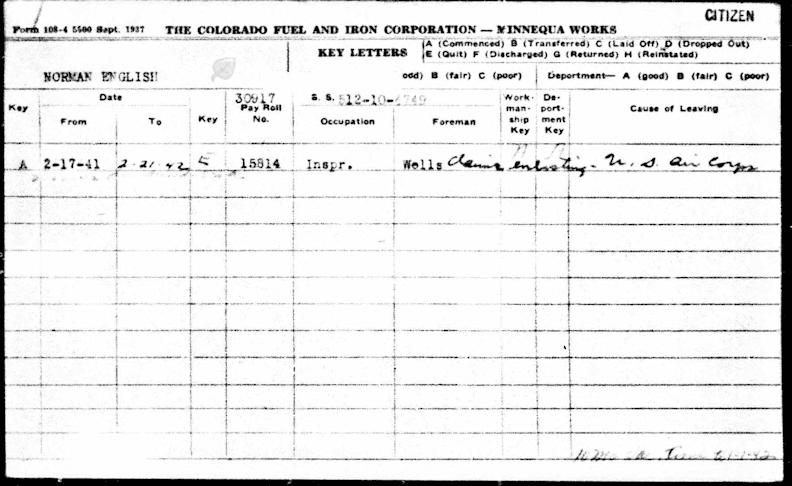 CITIZEN
Form 108-4 5500 Sept. 1937 THE COLORADO FUEL AND IRON CORPORATION — MINNEQUA WORKS
KEY LETTERS A (Commenced) B (Transferred) C (Laid Off) D (Dropped Out)
E (Quit) F (Discharged) G (Returned) H (Reinstated)
NORMAN ENGLISH ood) B (fair) C (poor) Deportment— A (good) B (fair) C (poor)
Key Date From To Key 30917 Pay Roll No. S. S. 512-10-4749 Occupation Foreman Work-man-ship Key De-port-ment Key Cause of Leaving
A 2-17-41 2-21-42 E 15814 Inspr. Wells Claims enlisting - U. S. Air Corps